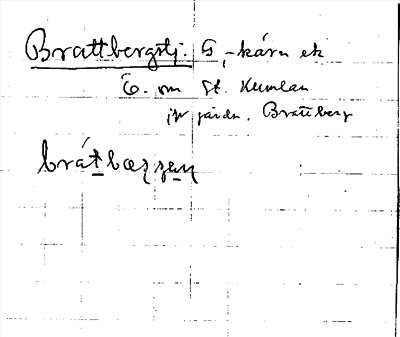 Brattbergstj. S, -kärn ek
Ö. om St. Kumlan
jfr gårdn. Brattberg
brátbærʒeɳ